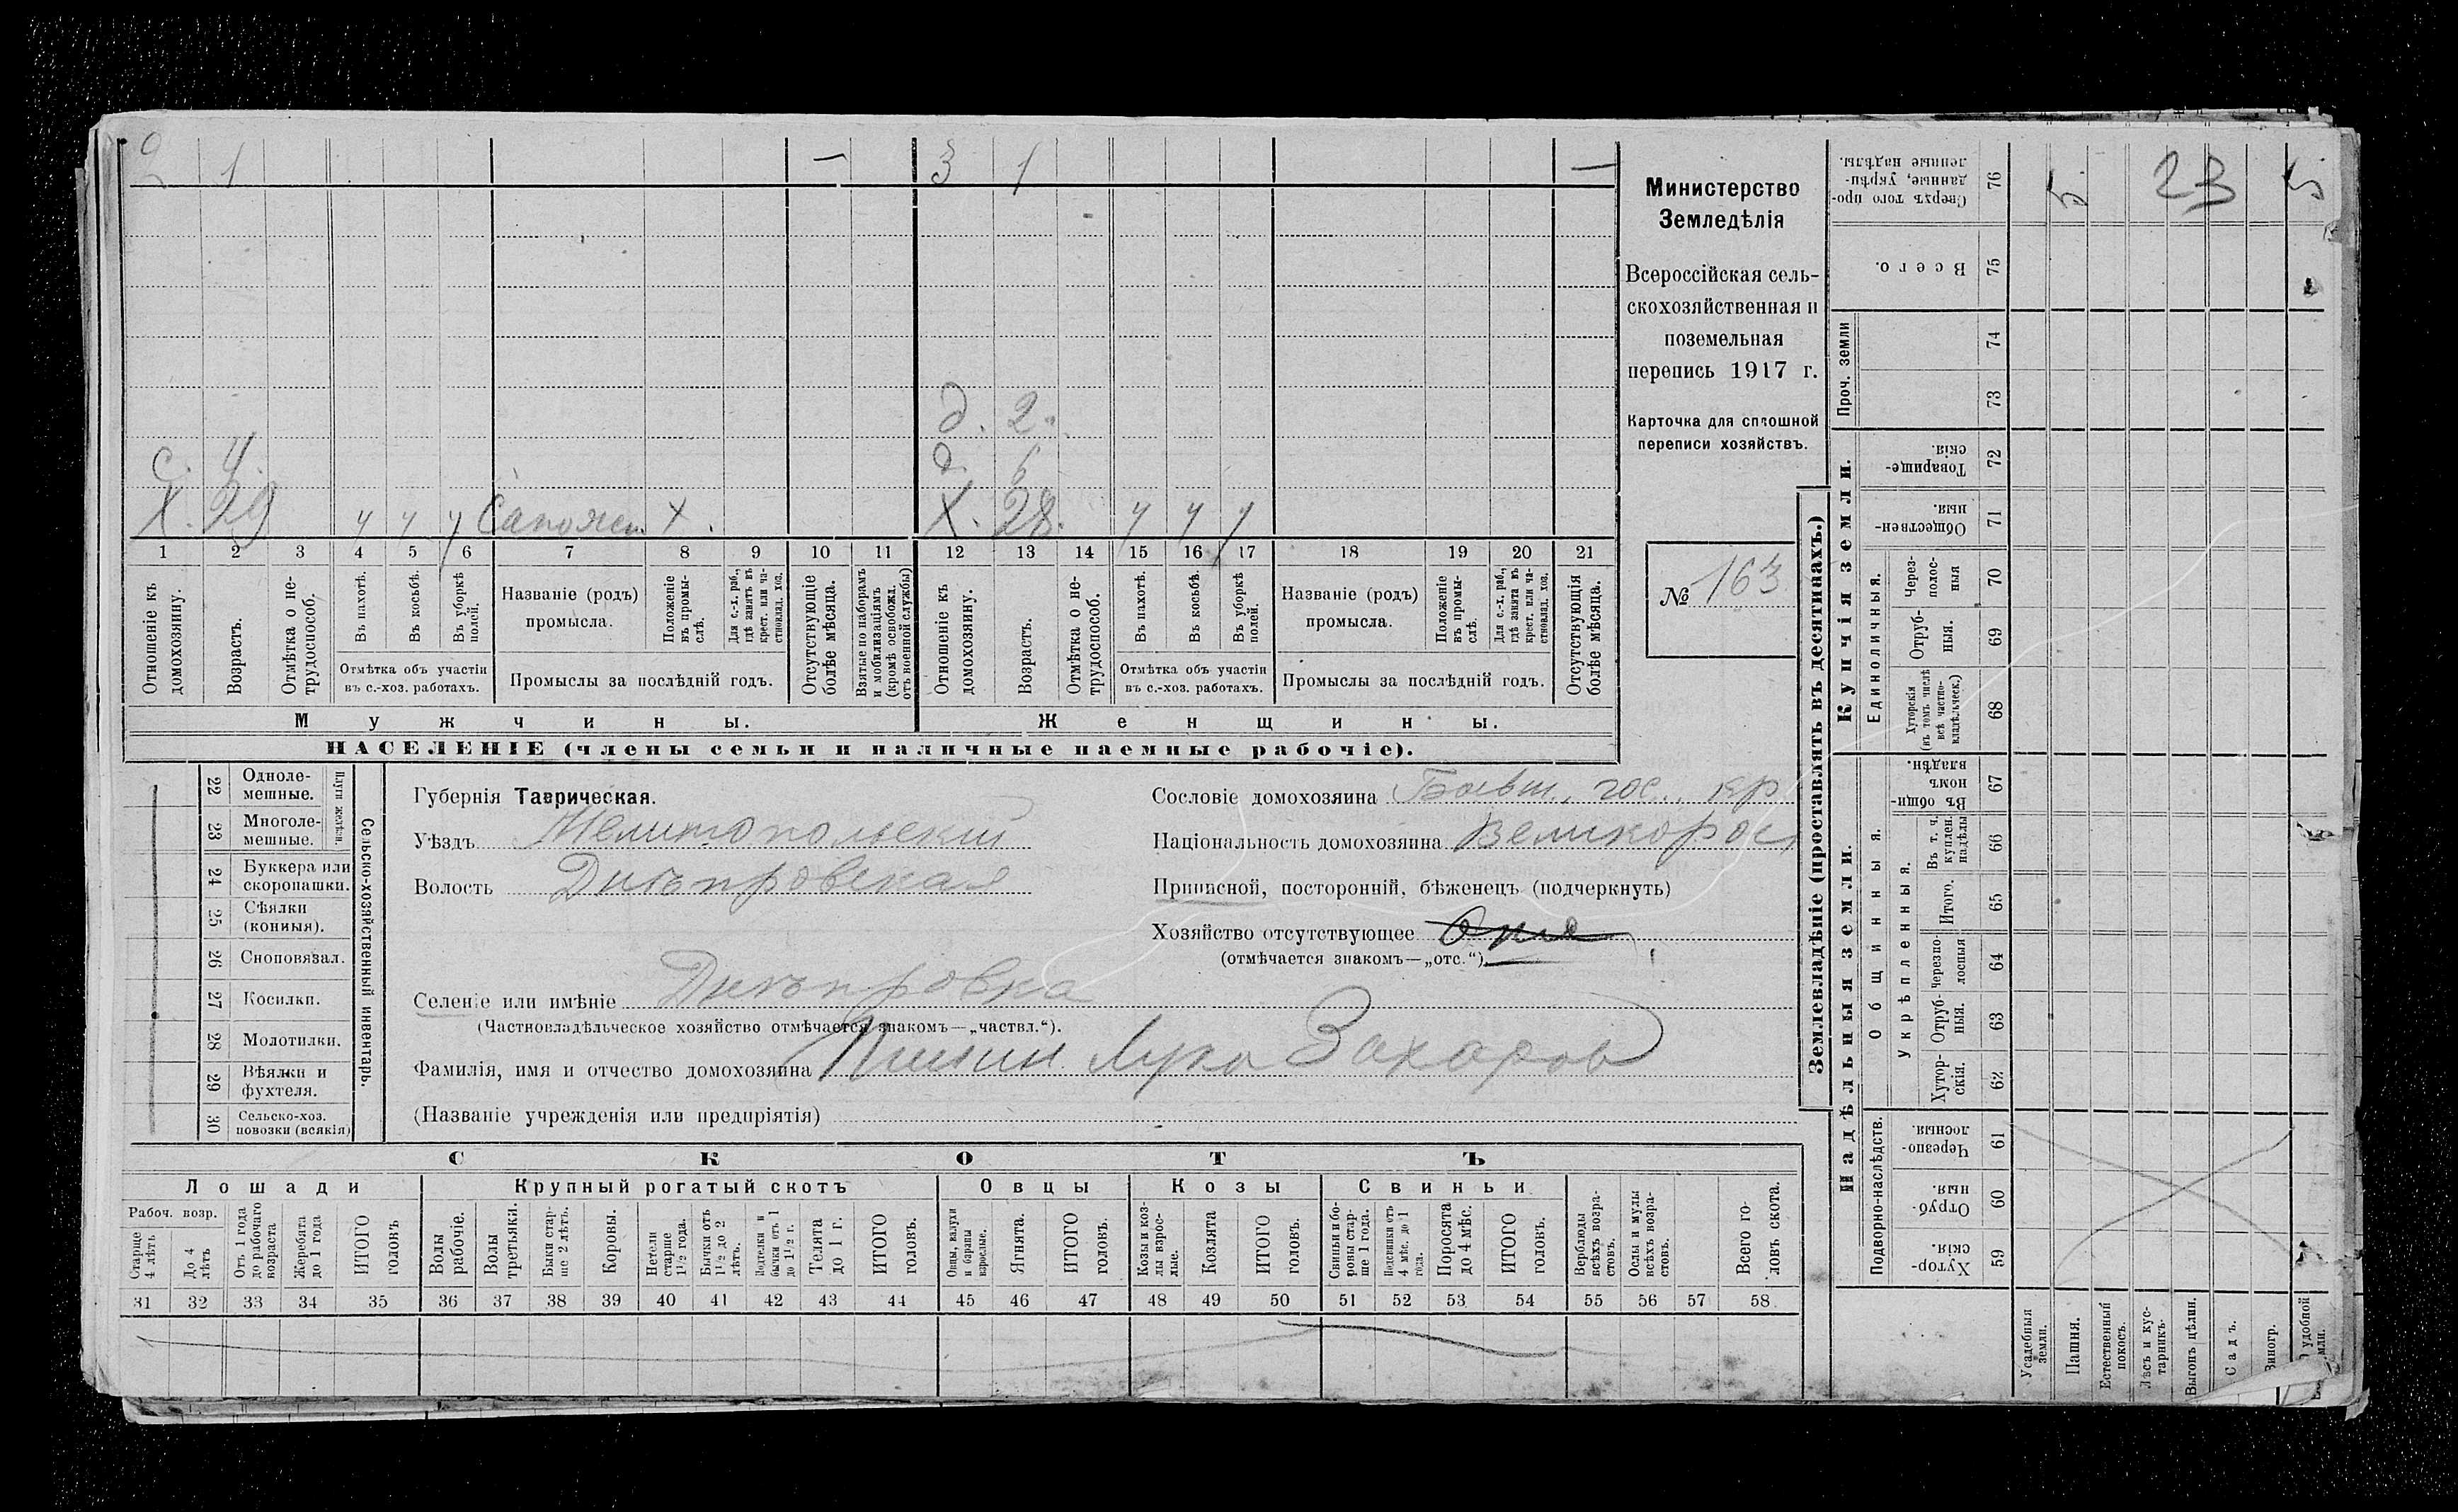 2 1 — 3 1 —
д. 2.
с. 4. д. 6
х. 29 у у у Сапожн. х. х. 28. у у у
1 2 3 4 5 6 7 8 9 10 11 12 13 14 15 16 17 18 19 20 21
Отношеніе къ домохозяину.
Возрастъ.
Отмѣтка о не-трудоспособ.
Въ пахотѣ.
Въ косьбѣ.
Въ уборкѣ полей.
Отмѣтка объ участіи
въ с.-хоз. работахъ.
Названіе (родъ)
промысла.
Положеніе въ промы-слѣ.
Для с.-х. раб., гдѣ занятъ въ крест. или ча-стновлад. хоз.
Промыслы за послѣдній годъ.
Отсутствующіе болѣе мѣсяца.
Взятые по наборамъ и мобилизаціямъ (кромѣ освобожд. отъ военной службы)
Отношеніе къ домохозяину.
Возрастъ.
Отмѣтка о не-трудоспособ.
Въ пахотѣ.
Въ косьбѣ.
Въ уборкѣ полей.
Отмѣтка объ участіи
въ с.-хоз. работахъ.
Названіе (родъ)
промысла.
Положеніе въ промы-слѣ.
Для с.-х. раб., гдѣ занята въ крест. или ча-стновлад. хоз.
Промыслы за послѣдній годъ.
Отсутствующія болѣе мѣсяца.
Мужчины. Женщины.
НАСЕЛЕНІЕ (члены семьи и наличные наемные рабочіе).
Министерство
Земледѣлія
Всероссійская сель-
скохозяйственная и
поземельная
перепись 1917 г.
Карточка для сплошной
переписи хозяйствъ.
№ 163
22 Одноле-мешные.
23 Многоле-мешные.
Плуги желѣзн.
24 Буккера или скоропашки.
25 Сѣялки (конныя).
26 Сноповязал.
27 Косилки.
28 Молотилки.
29 Вѣялки и фухтеля.
30 Сельско-хоз. повозки (всякія)
Сельско-хозяйственный инвентарь.
Губернія Таврическая.
Уѣздъ Мелитопольскій
Волость Днѣпровская
Сословіе домохозяина Бывш. гос. кр
Національность домохозяина Великорос
Приписной, посторонній, бѣженецъ (подчеркнуть)
Хозяйство отсутствующее
(отмѣчается знакомъ—„отс.“)
Селеніе или имѣніе Днѣпровка
(Частновладѣльческое хозяйство отмѣчается знакомъ—„частвл.“).
Фамилія, имя и отчество домохозяина Шишин Лука Захаров
(Названіе учрежденія или предпріятія)
СКОТЪ
Лошади Крупный рогатый скотъ Овцы Козы Свиньи
Рабоч. возр.
Старше 4 лѣтъ
До 4 лѣтъ
Отъ 1 года до рабочаго возраста
Жеребята до 1 года
ИТОГО головъ
Волы рабочіе.
Волы третьяки.
Быки стар-ше 2 лѣтъ.
Коровы.
Нетели старше 1½ года.
Бычки отъ 1½ до 2 лѣтъ.
Подтелки и бычки отъ 1 до 1½ г.
Телята до 1 г.
ИТОГО головъ.
Овцы, валухи и бараны взрослые.
Ягнята.
ИТОГО головъ.
Козы и коз-лы взрос-лые.
Козлята
ИТОГО головъ.
Свиньи и бо-ровы стар-ше 1 года.
Подсвинки отъ 4 мѣс. до 1 года.
Поросята до 4 мѣс.
ИТОГО головъ.
Верблюды всѣхъ возра-стовъ.
Ослы и мулы всѣхъ возра-стовъ.
Всего го-ловъ скота.
31 32 33 34 35 36 37 38 39 40 41 42 43 44 45 46 47 48 49 50 51 52 53 54 55 56 57 58
Землевладѣніе (проставлять въ десятинахъ.)
Сверхъ того про-данные, укрѣп-ленные надѣлы. 76 23
Всего. 75
Проч. земли 74 73
Купчія земли.
Товарище-скія 72
Обществен-ныя. 71
Единоличныя.
Через-полос-ныя 70
Отруб-ныя. 69
Хуторскія (въ томъ числѣ всѣ частно-владѣльческ.) 68
Надѣльныя земли.
Общинныя.
Въ общи-номъ владѣн. 67
Укрѣпленныя.
Въ т. ч. куплен. надѣлы 66
Итого. 65
черезпо-лосныя 64
Отруб-ныя. 63
Хутор-скія. 62
Подворно-наслѣдств.
Черезпо-лосныя. 61
Отруб-ныя. 60
Хутор-скія. 59
Усадебныя земли.
Пашня.
Естественный покосъ.
Лѣсъ и кус-тарникъ.
Выгонъ цѣлин.
Садъ.
Виногр.
удобной